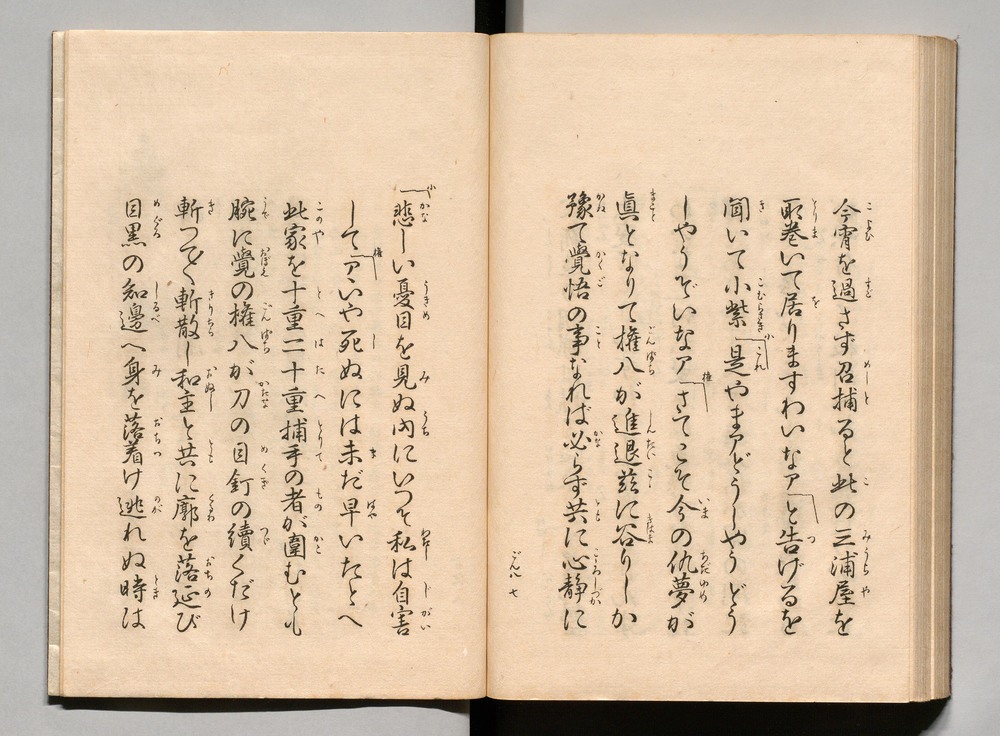 今宵を過さず召捕ると此の三浦屋を
取巻いて居りますわいなア」と告げるを
聞いて小紫「是やまアどうしやうどう
しやうぞいなア「さてこそ今の仇夢が
眞となりて權八が進退茲に谷りしか
豫て覺悟の事なれば必らず共に心静に
ごん八 七
「悲しい憂目を見ぬ内にいつそ私は自害
してアいや死ぬには未だ早いたとへ
此家を十重二十重捕手の者が圍むとも
腕に覺の權八が刀の目釘の續くだけ
斬つて〱斬散し和主と共に廓を落延び
目黒の知邊へ身を落着け逃れぬ時は